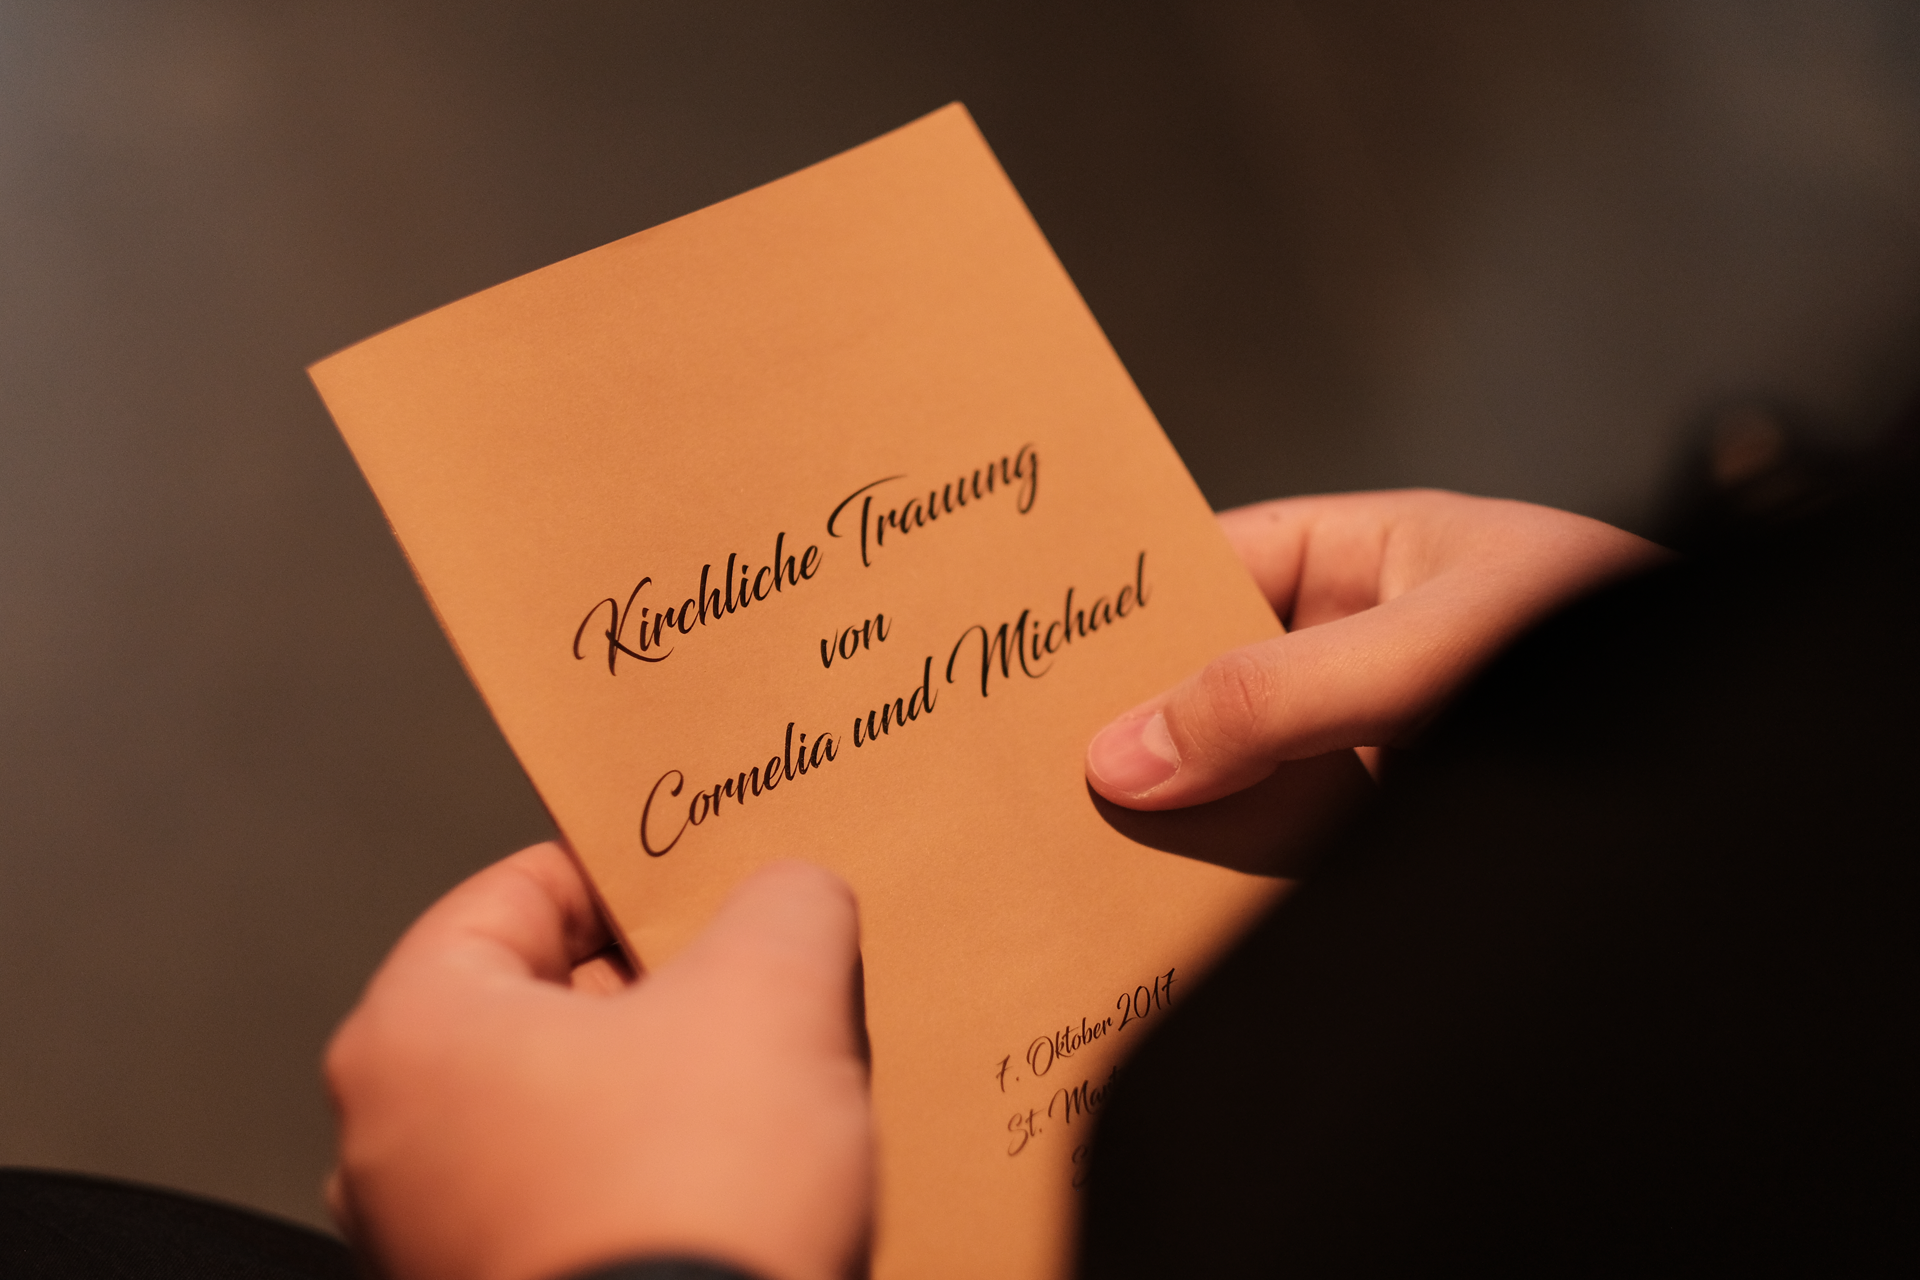 Kirchliche Trauung
von
Cornelia und Michael
7. Oktober 2017
St.